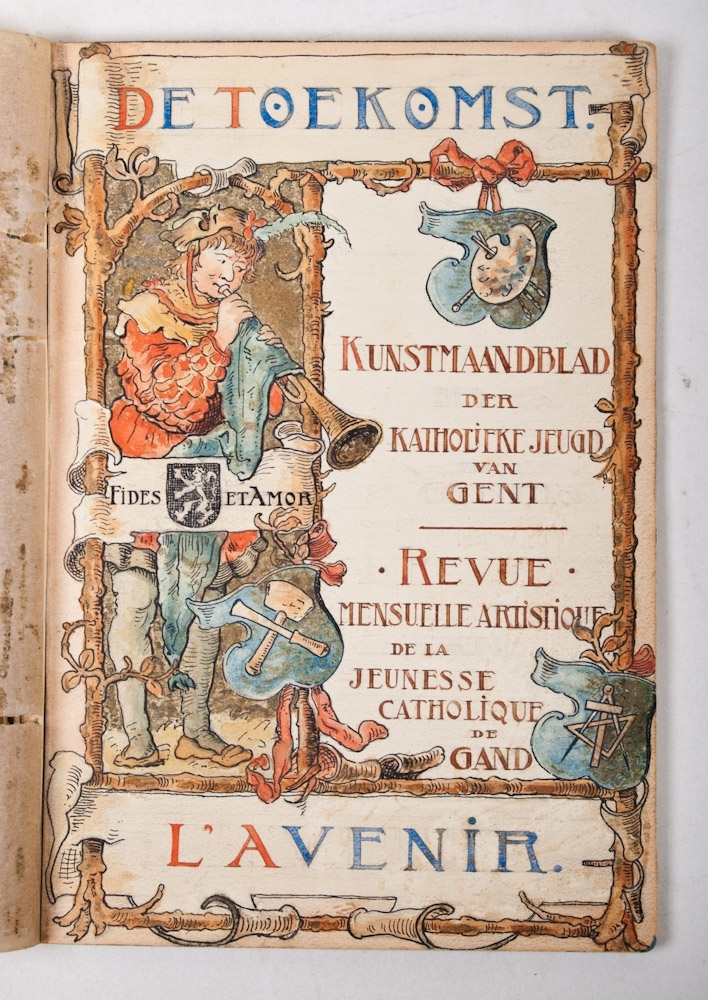 DE TOEKOMST.
KUNSTMAANDBLAD
DER
KATHOLIEKE JEUGD
VAN
GENT
FIDES ET AMOR
· REVUE ·
MENSUELLE ARTISTIQUE
DE LA
JEUNESSE
CATHOLIQUE
DE
GAND
L'AVENIR.